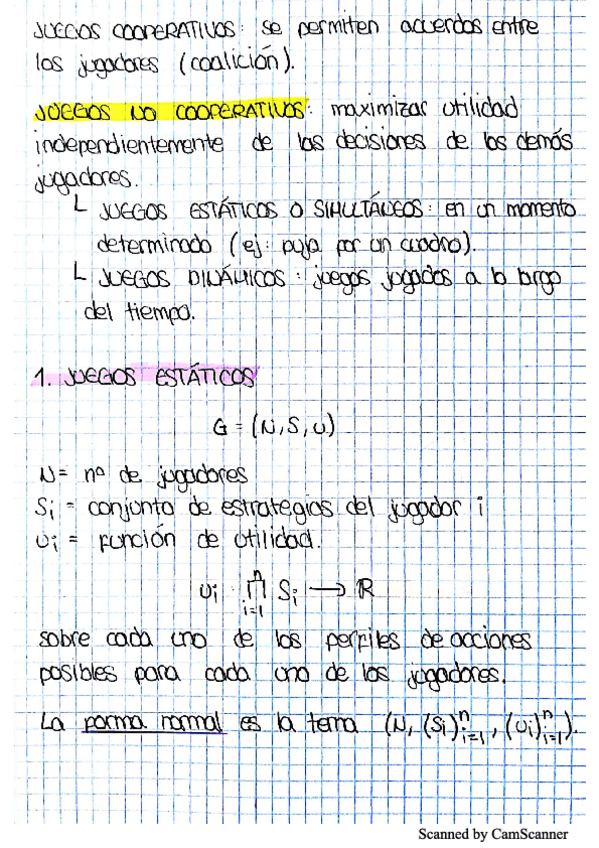 JUEGOS COOPERATIVOS: se permiten acuerdos entre
los jugadores (coalición).
JUEGOS NO COOPERATIVOS: maximizar utilidad
independientemente de las decisiones de los demás
jugadores.
└ JUEGOS ESTÁTICOS O SIMULTÁNEOS: en un momento
determinado (ej: puja por un cuadro).
└ JUEGOS DINÁMICOS: juegos jugados a lo largo
del tiempo.
1. JUEGOS ESTÁTICOS
G = (N, S, u)
N = nº de jugadores
Si = conjunto de estrategias del jugador i
ui = función de utilidad.
ui : ∏ⁿᵢ₌₁ Si → ℝ
sobre cada uno de los perfiles de acciones
posibles para cada uno de los jugadores.
La forma normal es la terna (N, (Si)ⁿᵢ₌₁, (ui)ⁿᵢ₌₁).
Scanned by CamScanner